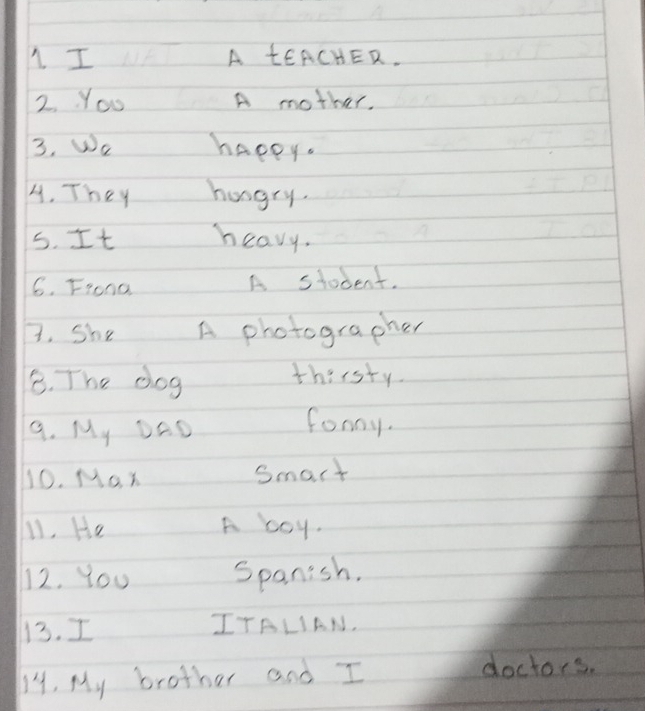 1 I A tEACHER.
2. You A mother.
3. We hAppy.
4. They hungry.
5. It heavy.
6. Fiona A student.
7. She A photographer
8. The dog thirsty.
9. My DAD funny.
10. Max Smart
11. He A boy.
12. You Spanish.
13. I ITALIAN.
14. My brother and I doctors.